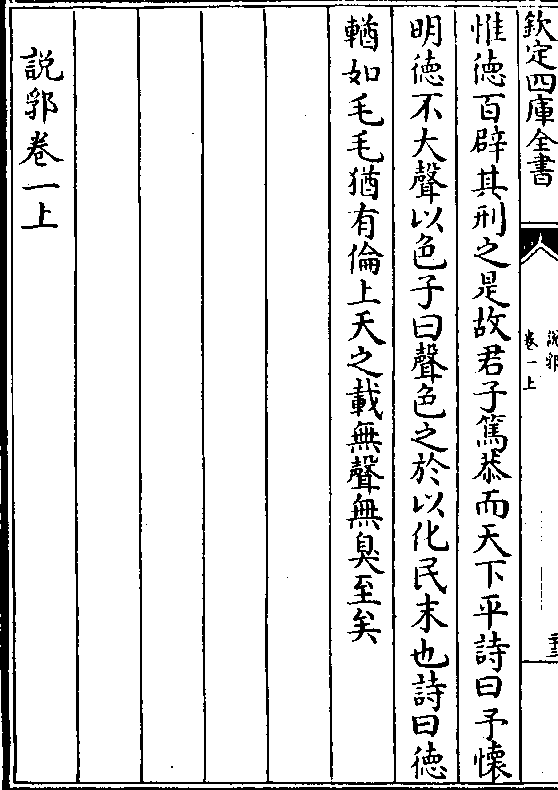 欽定四庫全書
說郛
卷一上
惟徳百辟其刑之是故君子篤恭而天下平詩曰予懷
明徳不大聲以色子曰聲色之於以化民末也詩曰徳
輶如毛毛猶有倫上天之載無聲無臭至矣
說郛卷一上